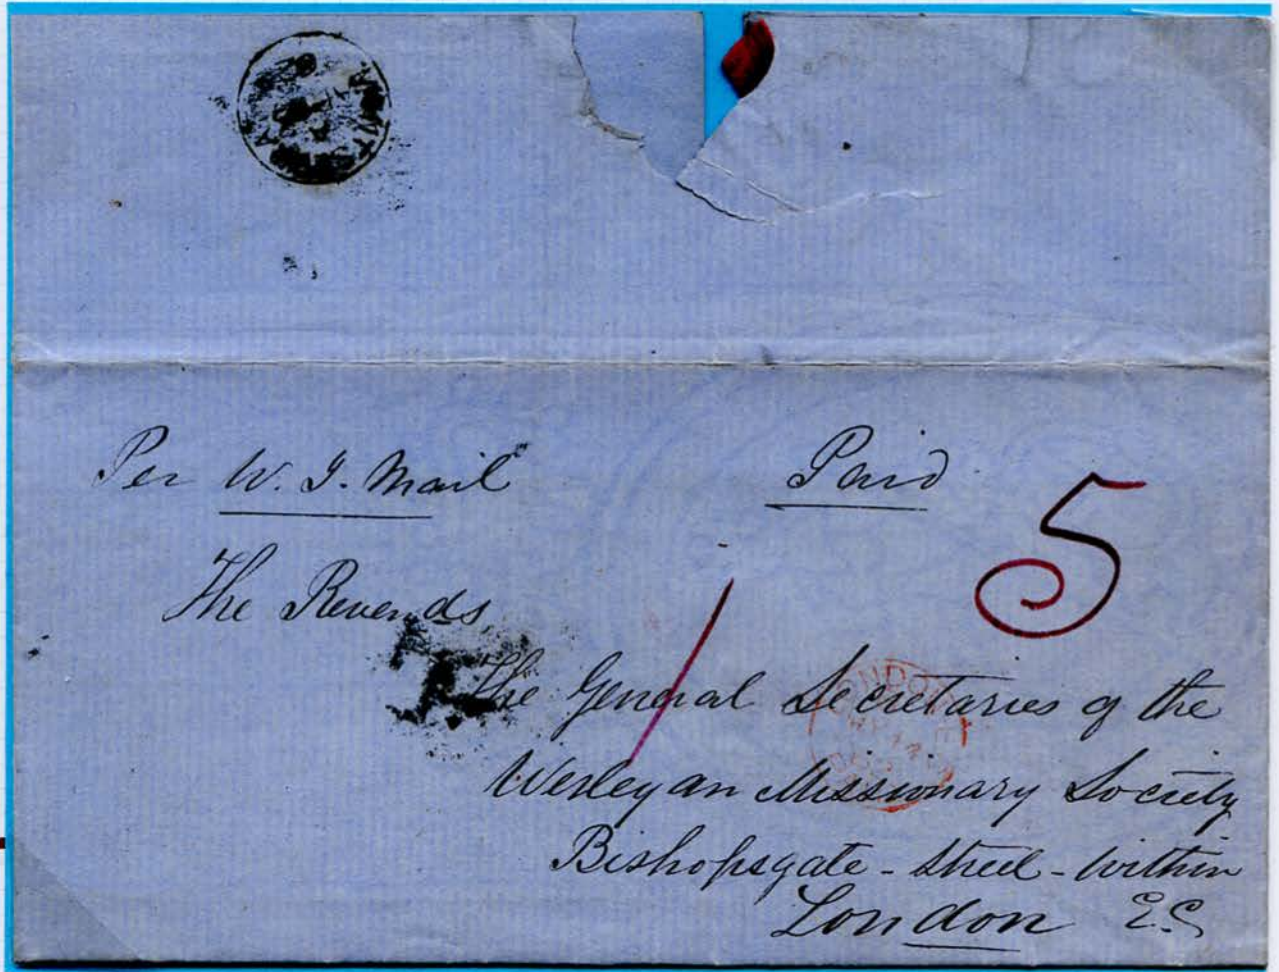 Per W. I. Mail
Paid
5
The Reverends
1
The General Secretaries of the
LONDON
Wesleyan Missionary Society
PAID
Bishopsgate - Street - Within
London E.C